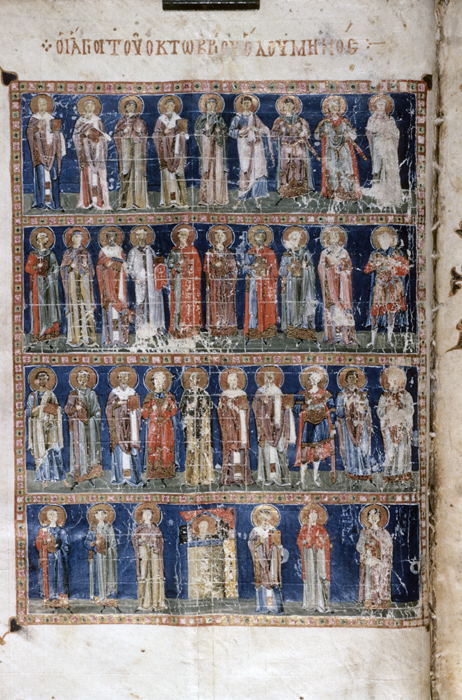 ΟΙ ΑΓΙΟΙ ΤΟΥ ΟΚΤΩΒΡΙΟΥ ΟΛΟΥ ΜΗΝΟΣ